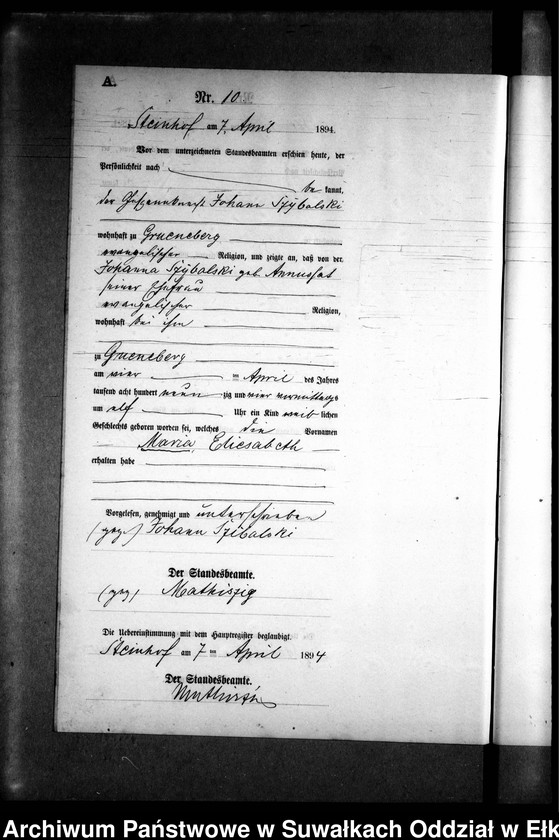 A.
Nr. 10
Steinhof am 7. April 1894.
Vor dem unterzeichneten Standesbeamten erschien heute, der
Persönlichkeit nach
be kannt,
der Johann Szybalski
wohnhaft zu Grueneberg
evangelischer Religion, und zeigte an, daß von der
Johanna Szybalski geb. Annussat
seiner Ehefrau
evangelischer Religion,
wohnhaft bei ihm
zu Grueneberg
am vier ten April des Jahres
tausend acht hundert neun zig und vier vormittags
um elf Uhr ein Kind weib lichen
Geschlechts geboren worden sei, welches die Vornamen
Maria Eliesabeth
erhalten habe
Vorgelesen, genehmigt und unterschrieben
(gez.) Johann Szibalski
Der Standesbeamte.
(gez) Mathiszig
Die Uebereinstimmung mit dem Hauptregister beglaubigt.
Steinhof am 7 ten April 1894
Der Standesbeamte.
Mathiszig
Archiwum Państwowe w Suwałkach Oddział w Ełk